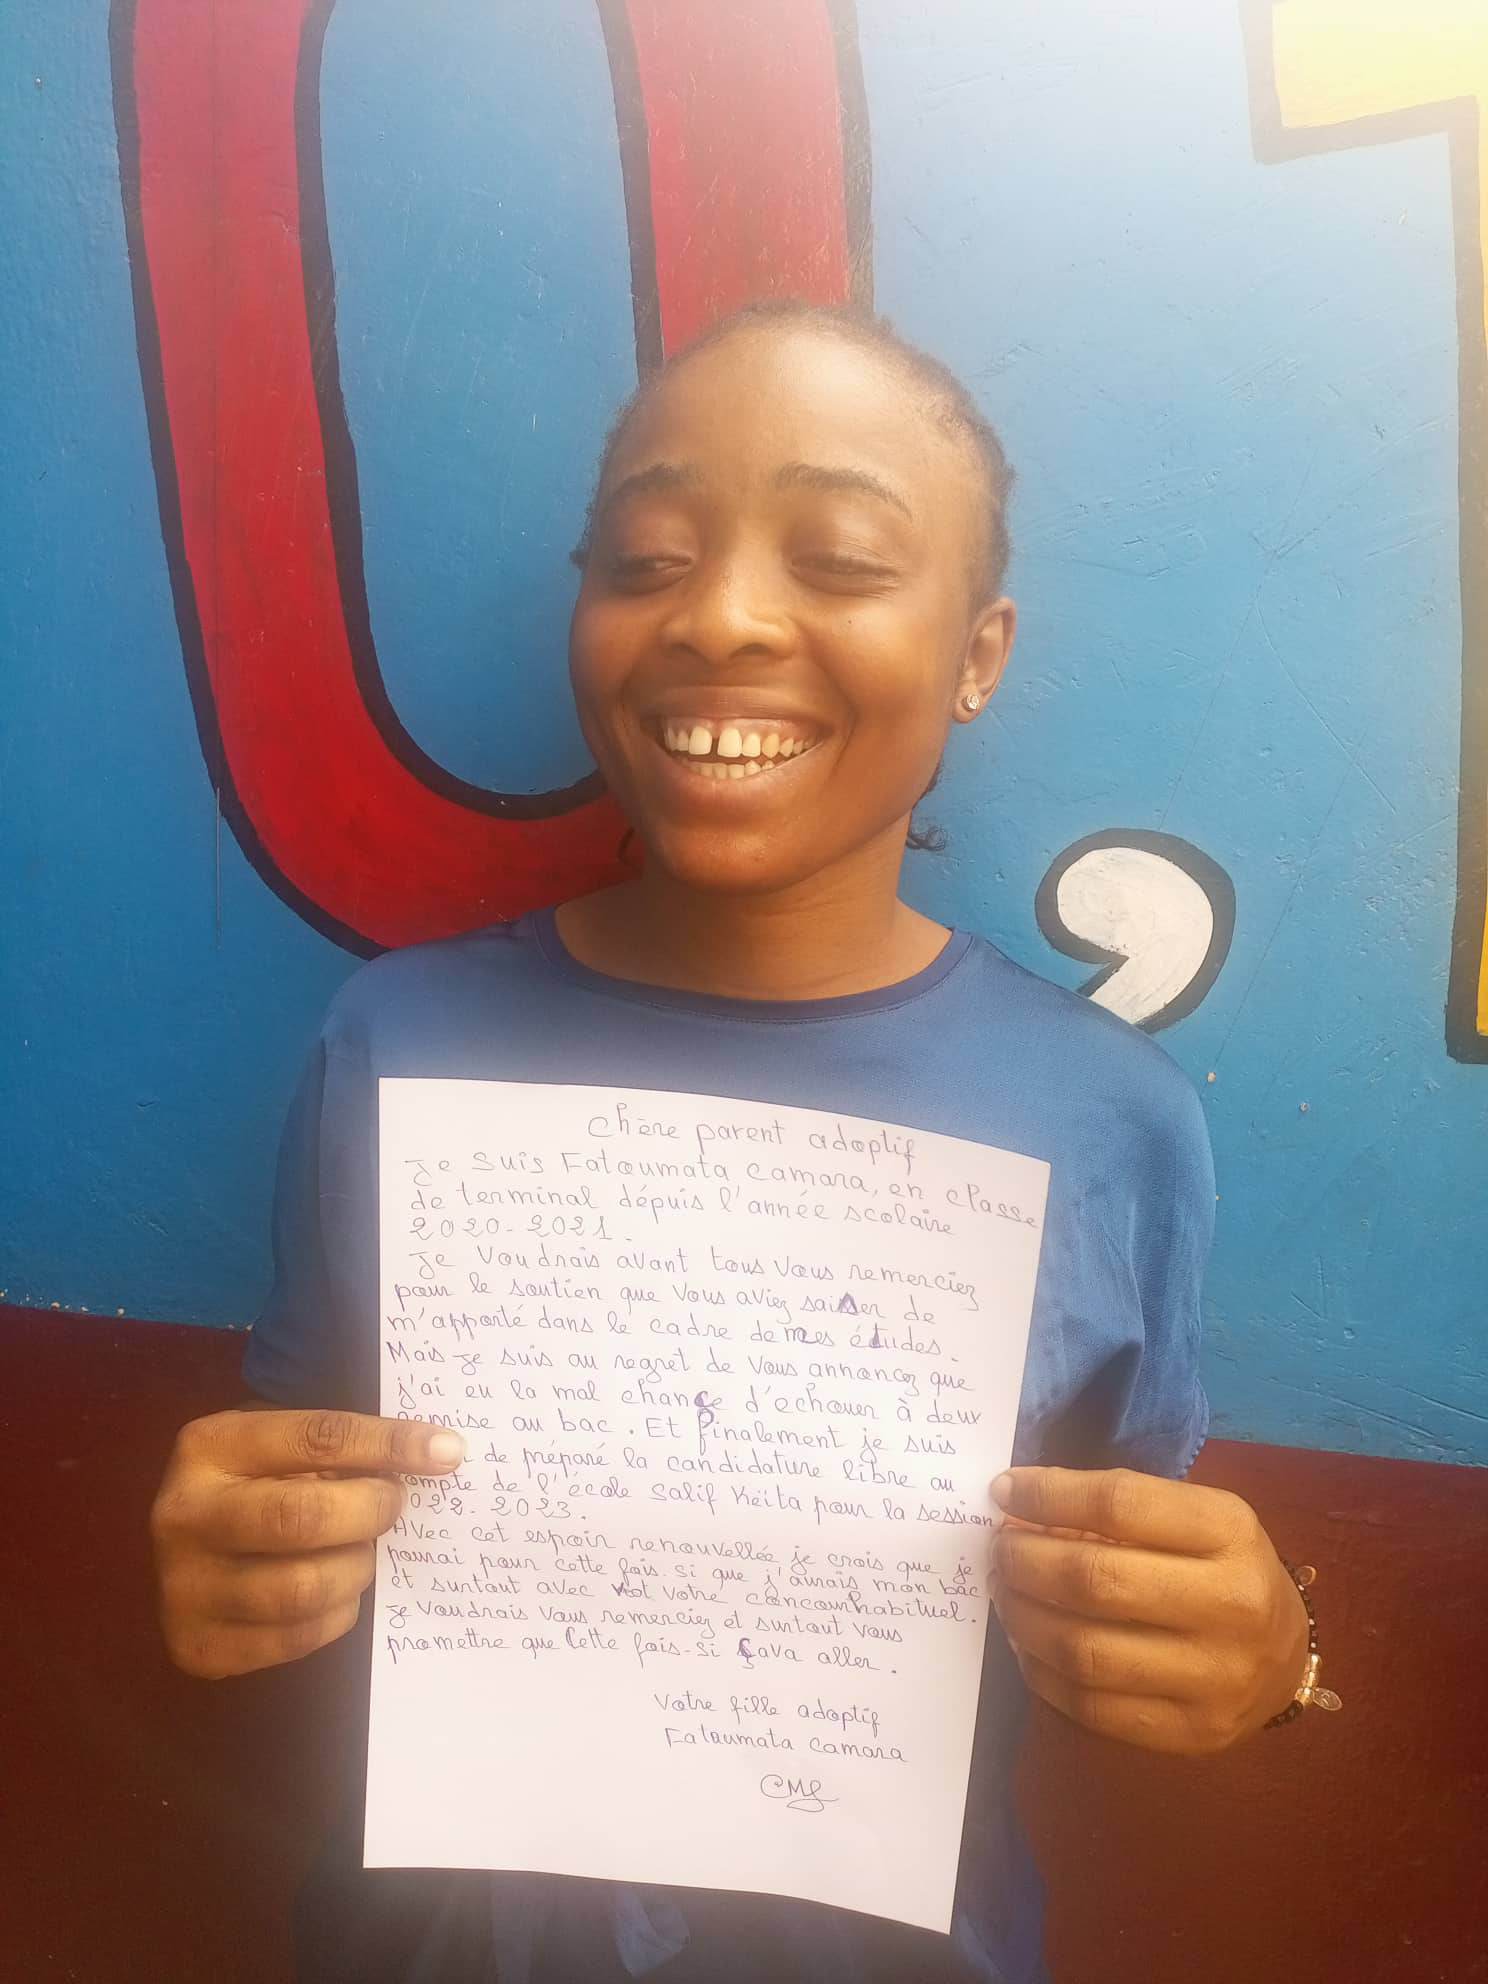 0
,
Chère parent adoptif
Je suis Fatoumata Camara, en classe
de terminal dépuis l'année scolaire
2020-2021.
Je voudrais avant tous vous remerciez
pour le soutien que vous aviez sainer de
m'apporté dans le cadre de mes études.
Mais je suis au regret de vous annoncez que
j'ai eu la mal chance d'échouer à deux
remise au bac. Et finalement je suis
de préparé la candidature libre au
compte de l'école Salif Keïta pour la session
2022-2023.
Avec cet espoir renouvellée je crois que je
pourai pour cette fois-si que j'aurais mon bac
et surtout avec votre concourhabituel.
Je voudrais vous remerciez et surtout vous
promettre que Cette fois-si Çava aller.
Votre fille adoptif
Fatoumata Camara